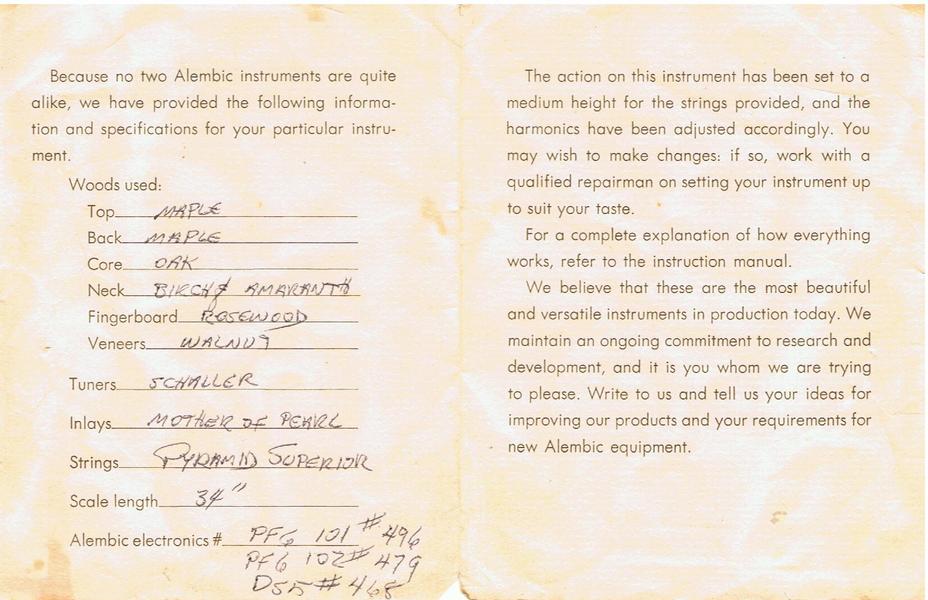 Because no two Alembic instruments are quite
alike, we have provided the following informa-
tion and specifications for your particular instru-
ment.
Woods used:
Top MAPLE
Back MAPLE
Core OAK
Neck BIRCH & AMARANTH
Fingerboard ROSEWOOD
Veneers WALNUT
Tuners SCHALLER
Inlays MOTHER OF PEARL
Strings PYRAMID SUPERIOR
Scale length 34"
Alembic electronics # PF6 101 # 496
PF6 102 # 479
DS5 # 468
The action on this instrument has been set to a
medium height for the strings provided, and the
harmonics have been adjusted accordingly. You
may wish to make changes: if so, work with a
qualified repairman on setting your instrument up
to suit your taste.
For a complete explanation of how everything
works, refer to the instruction manual.
We believe that these are the most beautiful
and versatile instruments in production today. We
maintain an ongoing commitment to research and
development, and it is you whom we are trying
to please. Write to us and tell us your ideas for
improving our products and your requirements for
new Alembic equipment.